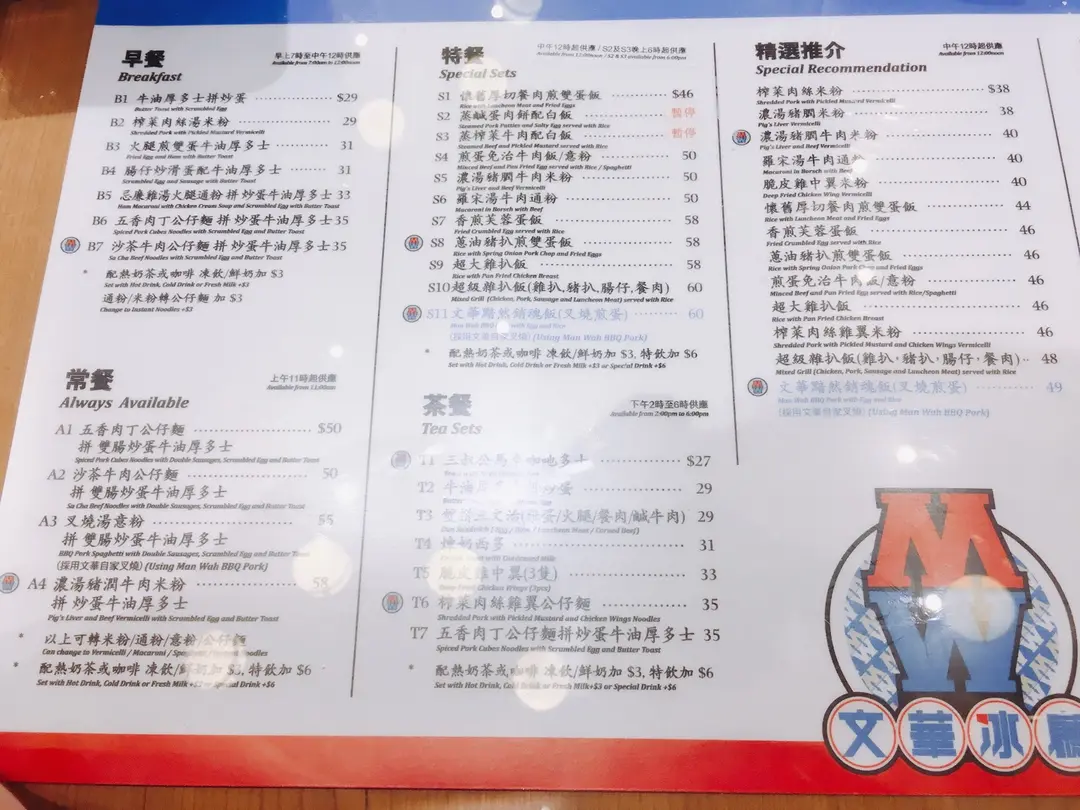 早餐
Breakfast
早上7時至中午12時供應
Available from 7:00am to 12:00noon
B1 牛油厚多士拼炒蛋 $29
Butter Toast with Scrambled Egg
B2 榨菜肉絲湯米粉 29
Shredded Pork with Pickled Mustard Vermicelli
B3 火腿煎雙蛋牛油厚多士 31
Fried Egg and Ham with Butter Toast
B4 腸仔炒滑蛋配牛油厚多士 31
Scrambled Egg and Sausage with Butter Toast
B5 忌廉雞湯火腿通粉 拼炒蛋牛油厚多士 33
Ham Macaroni with Chicken Cream Soup and Scrambled Egg with Butter Toast
B6 五香肉丁公仔麵 拼炒蛋牛油厚多士 35
Spiced Pork Cubes Noodles with Scrambled Egg and Butter Toast
B7 沙茶牛肉公仔麵 拼炒蛋牛油厚多士 35
Sa Cha Beef Noodles with Scrambled Egg and Butter Toast
* 配熱奶茶或咖啡 凍飲/鮮奶加 $3
Set with Hot Drink, Cold Drink or Fresh Milk +$3
通粉/米粉轉公仔麵 加 $3
Change to Instant Noodles +$3
常餐
Always Available
上午11時起供應
Available from 11:00am
A1 五香肉丁公仔麵 $50
拼 雙腸炒蛋牛油厚多士
Spiced Pork Cubes Noodles with Double Sausages, Scrambled Egg and Butter Toast
A2 沙茶牛肉公仔麵 50
拼 雙腸炒蛋牛油厚多士
Sa Cha Beef Noodles with Double Sausages, Scrambled Egg and Butter Toast
A3 叉燒湯意粉 55
拼 雙腸炒蛋牛油厚多士
BBQ Pork Spaghetti with Double Sausages, Scrambled Egg and Butter Toast
(採用文華自家叉燒) (Using Man Wah BBQ Pork)
A4 濃湯豬潤牛肉米粉 58
拼 炒蛋牛油厚多士
Pig's Liver and Beef Vermicelli with Scrambled Egg and Butter Toast
* 以上可轉米粉/通粉/意粉/公仔麵
Can change to Vermicelli / Macaroni / Noodles
* 配熱奶茶或咖啡 凍飲/鮮奶加 $3, 特飲加 $6
Set with Hot Drink, Cold Drink or Fresh Milk +$3 or Special Drink +$6
特餐
Special Sets
中午12時起供應 / S2及S3晚上6時起供應
Available from 12:00noon / S2 & S3 available from 6:00pm
S1 懷舊厚切餐肉煎雙蛋飯 $46
Rice with Luncheon Meat and Fried Eggs
S2 蒸鹹蛋肉餅配白飯 暫停
Steamed Pork Patties and Salty Egg served with Rice
S3 蒸榨菜牛肉配白飯 暫停
Steamed Beef and Pickled Mustard served with Rice
S4 煎蛋免治牛肉飯/意粉 50
Minced Beef and Pan Fried Egg served with Rice / Spaghetti
S5 濃湯豬膶牛肉米粉 50
Pig's Liver and Beef Vermicelli
S6 羅宋湯牛肉通粉 50
Macaroni in Borsch with Beef
S7 香煎芙蓉蛋飯 58
Fried Crumbled Egg served with Rice
S8 蔥油豬扒煎雙蛋飯 58
Rice with Spring Onion Pork Chop and Fried Eggs
S9 超大雞扒飯 58
Rice with Pan Fried Chicken Breast
S10 超級雜扒飯(雞扒,豬扒,腸仔,餐肉) 60
Mixed Grill (Chicken, Pork, Sausage and Luncheon Meat) served with Rice
S11 文華黯然銷魂飯(叉燒煎蛋) 60
Man Wah BBQ Pork with Egg and Rice
(採用文華自家叉燒) (Using Man Wah BBQ Pork)
* 配熱奶茶或咖啡 凍飲/鮮奶加 $3, 特飲加 $6
Set with Hot Drink, Cold Drink or Fresh Milk +$3 or Special Drink +$6
茶餐
Tea Sets
下午2時至6時供應
Available from 2:00pm to 6:00pm
T1 三叔公馬拉咖吔多士 $27
T2 牛油厚多士 炒蛋 29
T3 雙拼三文治(煎蛋/火腿/餐肉/鹹牛肉) 29
T4 煉奶西多 31
T5 脆皮雞中翼(3隻) 33
T6 榨菜肉絲雞翼公仔麵 35
Shredded Pork with Pickled Mustard and Chicken Wings Noodles
T7 五香肉丁公仔麵拼炒蛋牛油厚多士 35
Spiced Pork Cubes Noodles with Scrambled Egg and Butter Toast
* 配熱奶茶或咖啡 凍飲/鮮奶加 $3, 特飲加 $6
Set with Hot Drink, Cold Drink or Fresh Milk+$3 or Special Drink +$6
精選推介
Special Recommendation
中午12時起供應
Available from 12:00noon
榨菜肉絲米粉 $38
Shredded Pork with Pickled Mustard Vermicelli
濃湯豬膶米粉 38
Pig's Liver Vermicelli
濃湯豬膶牛肉米粉 40
Pig's Liver and Beef Vermicelli
羅宋湯牛肉通粉 40
Macaroni in Borsch with Beef
脆皮雞中翼米粉 40
Deep Fried Chicken Wing Vermicelli
懷舊厚切餐肉煎雙蛋飯 44
Rice with Luncheon Meat and Fried Eggs
香煎芙蓉蛋飯 46
Fried Crumbled Egg served with Rice
蔥油豬扒煎雙蛋飯 46
Rice with Spring Onion Pork Chop and Fried Eggs
煎蛋免治牛肉飯/意粉 46
Minced Beef and Pan Fried Egg served with Rice/Spaghetti
超大雞扒飯 46
Rice with Pan Fried Chicken Breast
榨菜肉絲雞翼米粉 46
Shredded Pork with Pickled Mustard and Chicken Wings Vermicelli
超級雜扒飯(雞扒,豬扒,腸仔,餐肉) 48
Mixed Grill (Chicken, Pork, Sausage and Luncheon Meat) served with Rice
文華黯然銷魂飯(叉燒煎蛋) 49
Man Wah BBQ Pork with Egg and Rice
(採用文華自家叉燒) (Using Man Wah BBQ Pork)
MW
文華冰廳